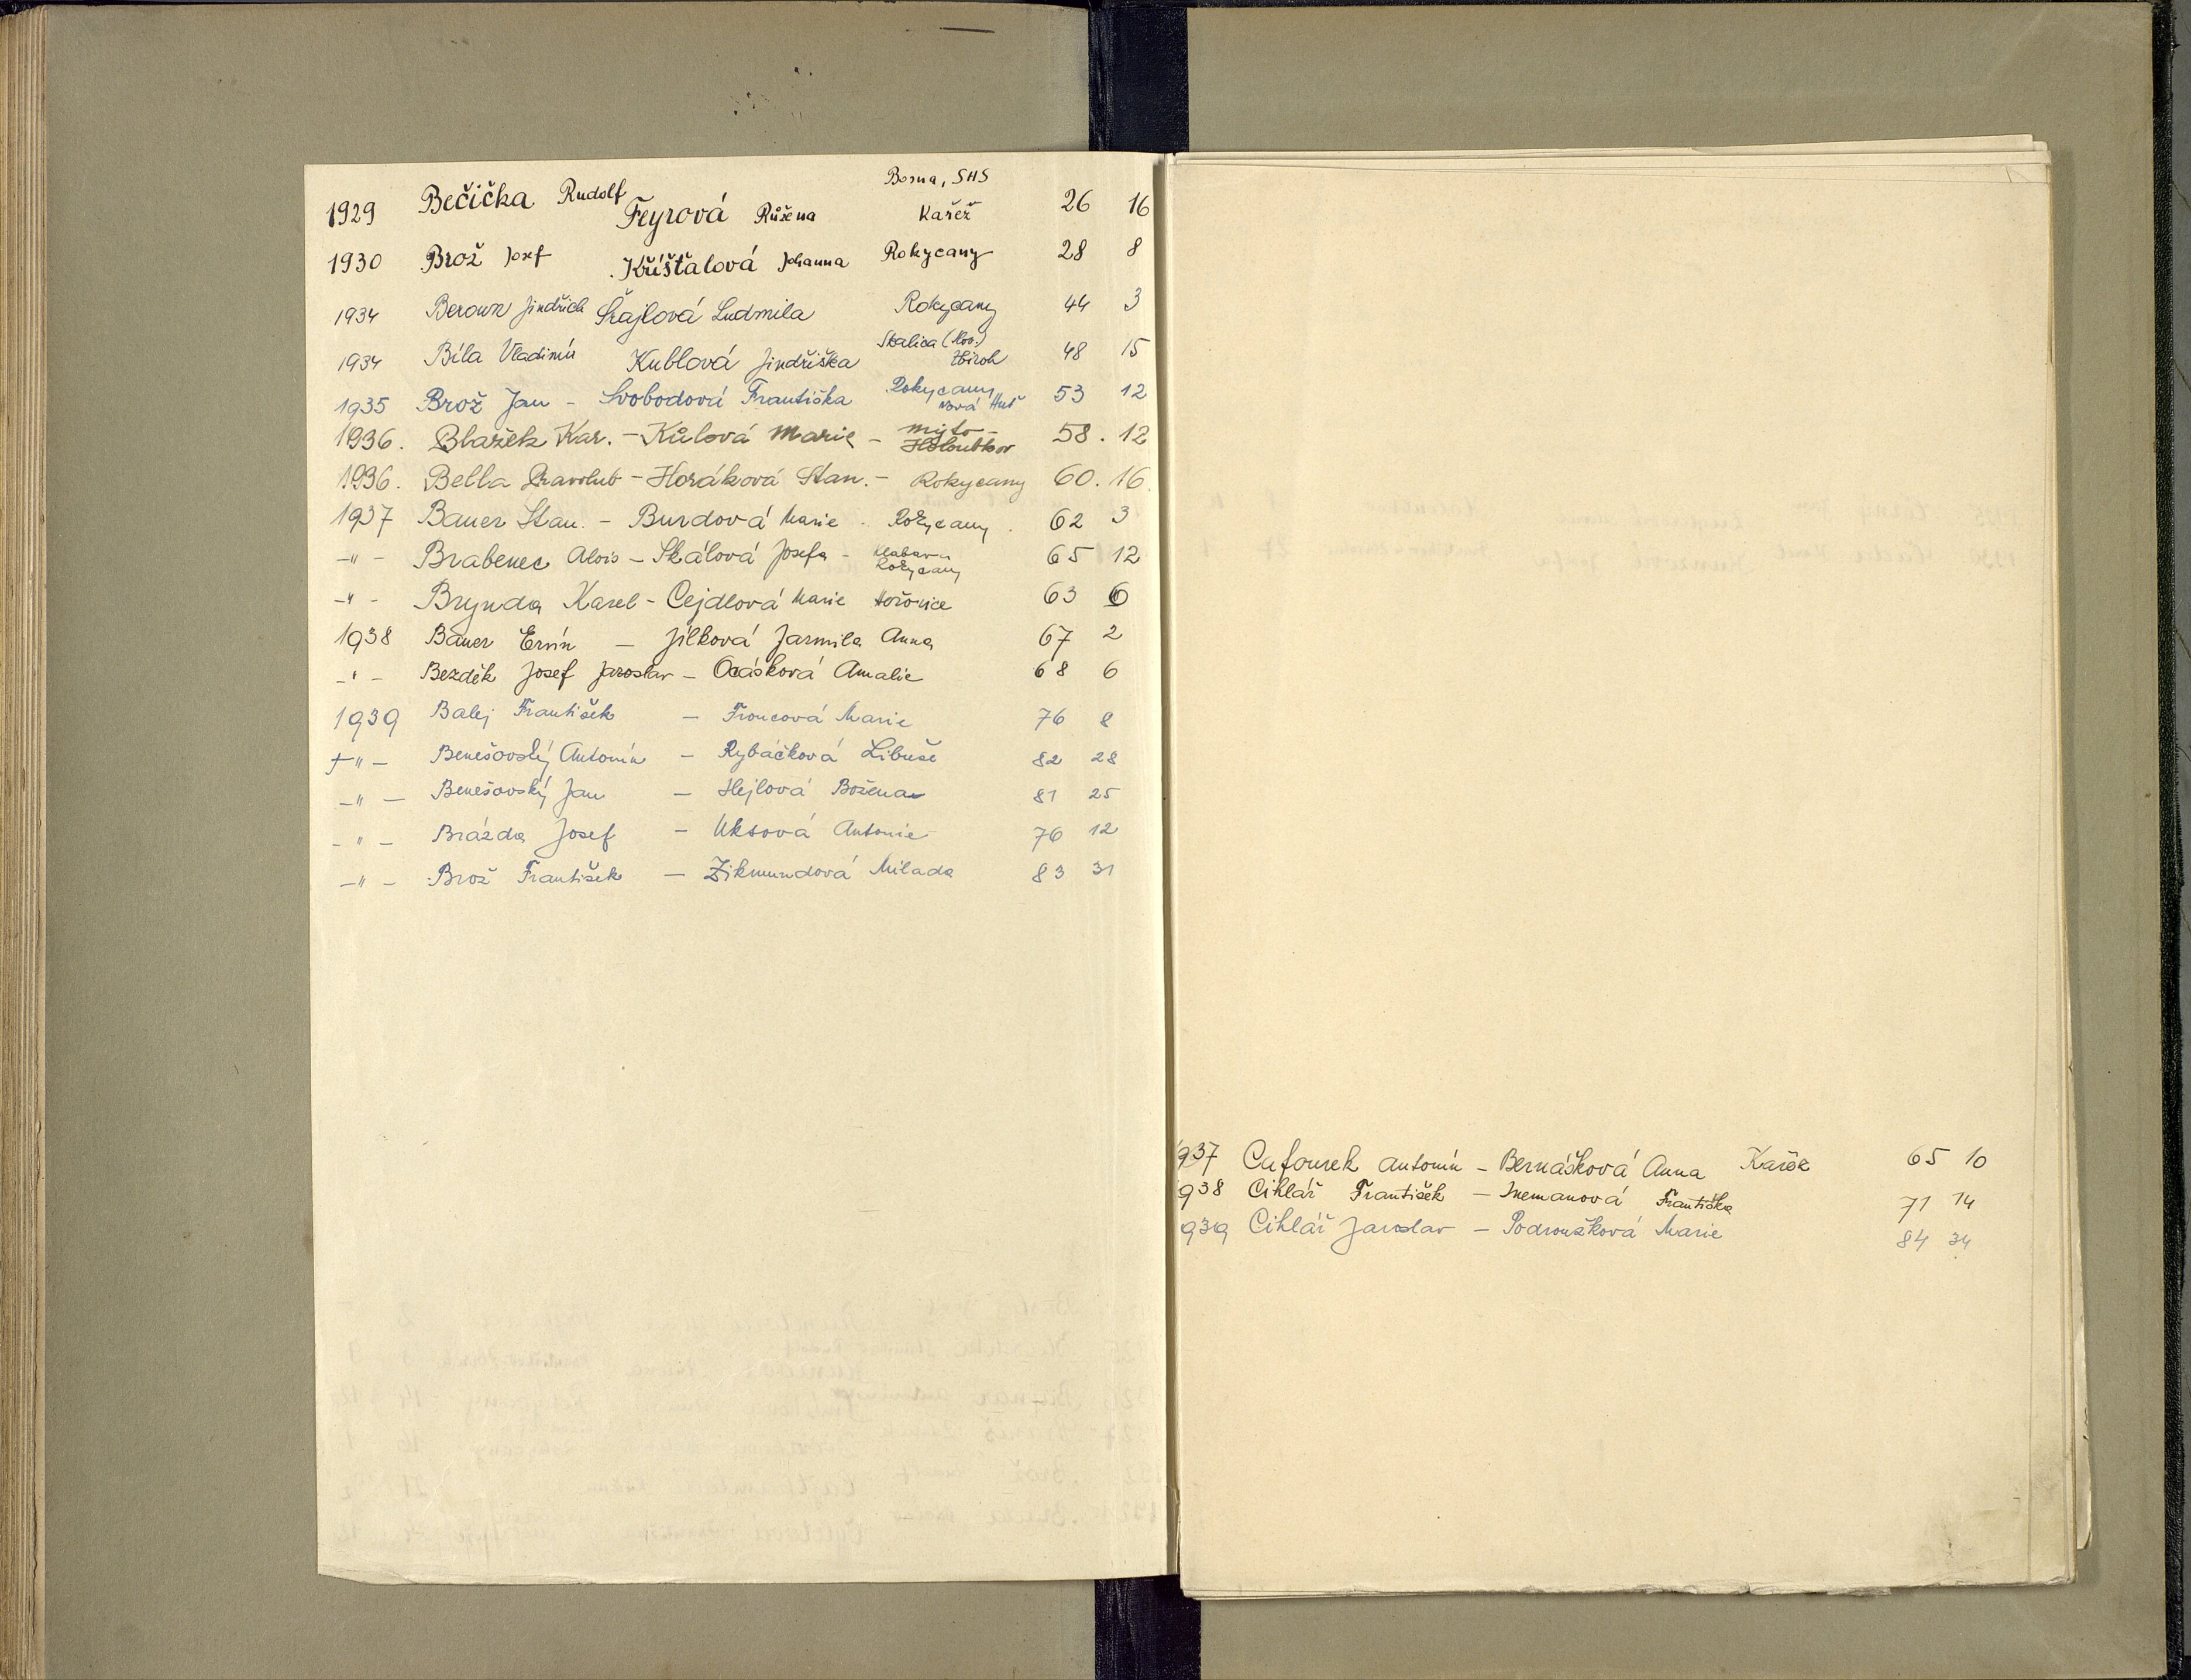 Bosna, SHS
1929 Bečička Rudolf Feyrová Růžena Kařez 26 16
1930 Brož Josef Křišťalová Johanna Rokycany 28 8
1934 Beroun Jindřich Šrajlová Ludmila Rokycany 44 3
Skalica (Slov.)
1934 Bíla Vladimír Kublová Jindřiška Zbiroh 48 15
1935 Brož Jan - Svobodová Františka Rokycany Nová Huť 53 12
1936. Blažek Kar. - Kůlová Marie - Mýto - Holoubkov 58. 12
1936. Bella Pravolub - Horáková Stan. - Rokycany 60. 16.
1937 Bauer Stan. - Burdová Marie - Rokycany. 62 3
-"- Brabenec Alois - Skálová Josefa - Klabava Rokycany 65 12
-"- Brynda Karel - Cejdlová Marie Hořovice 63 6
1938 Bauer Ervín - Jílková Jarmila Anna 67 2
-"- Bezděk Josef Jaroslav - Ocásková Amalie 68 6
1939 Balej František - Froncová Marie 76 8
+"- Benešovský Antonín - Rybáčková Libuše 82 28
-"- Benešovský Jan - Hejlová Božena 81 25
-"- Brázda Josef - Uksová Antonie 76 12
-"- Brož František - Zikmundová Milada 83 31
937 Cafourek Antonín - Bernášková Anna Kařez 65 10
938 Cihlář František - Františka 71 14
939 Cihlář Jaroslav - Podroužková Marie 84 34